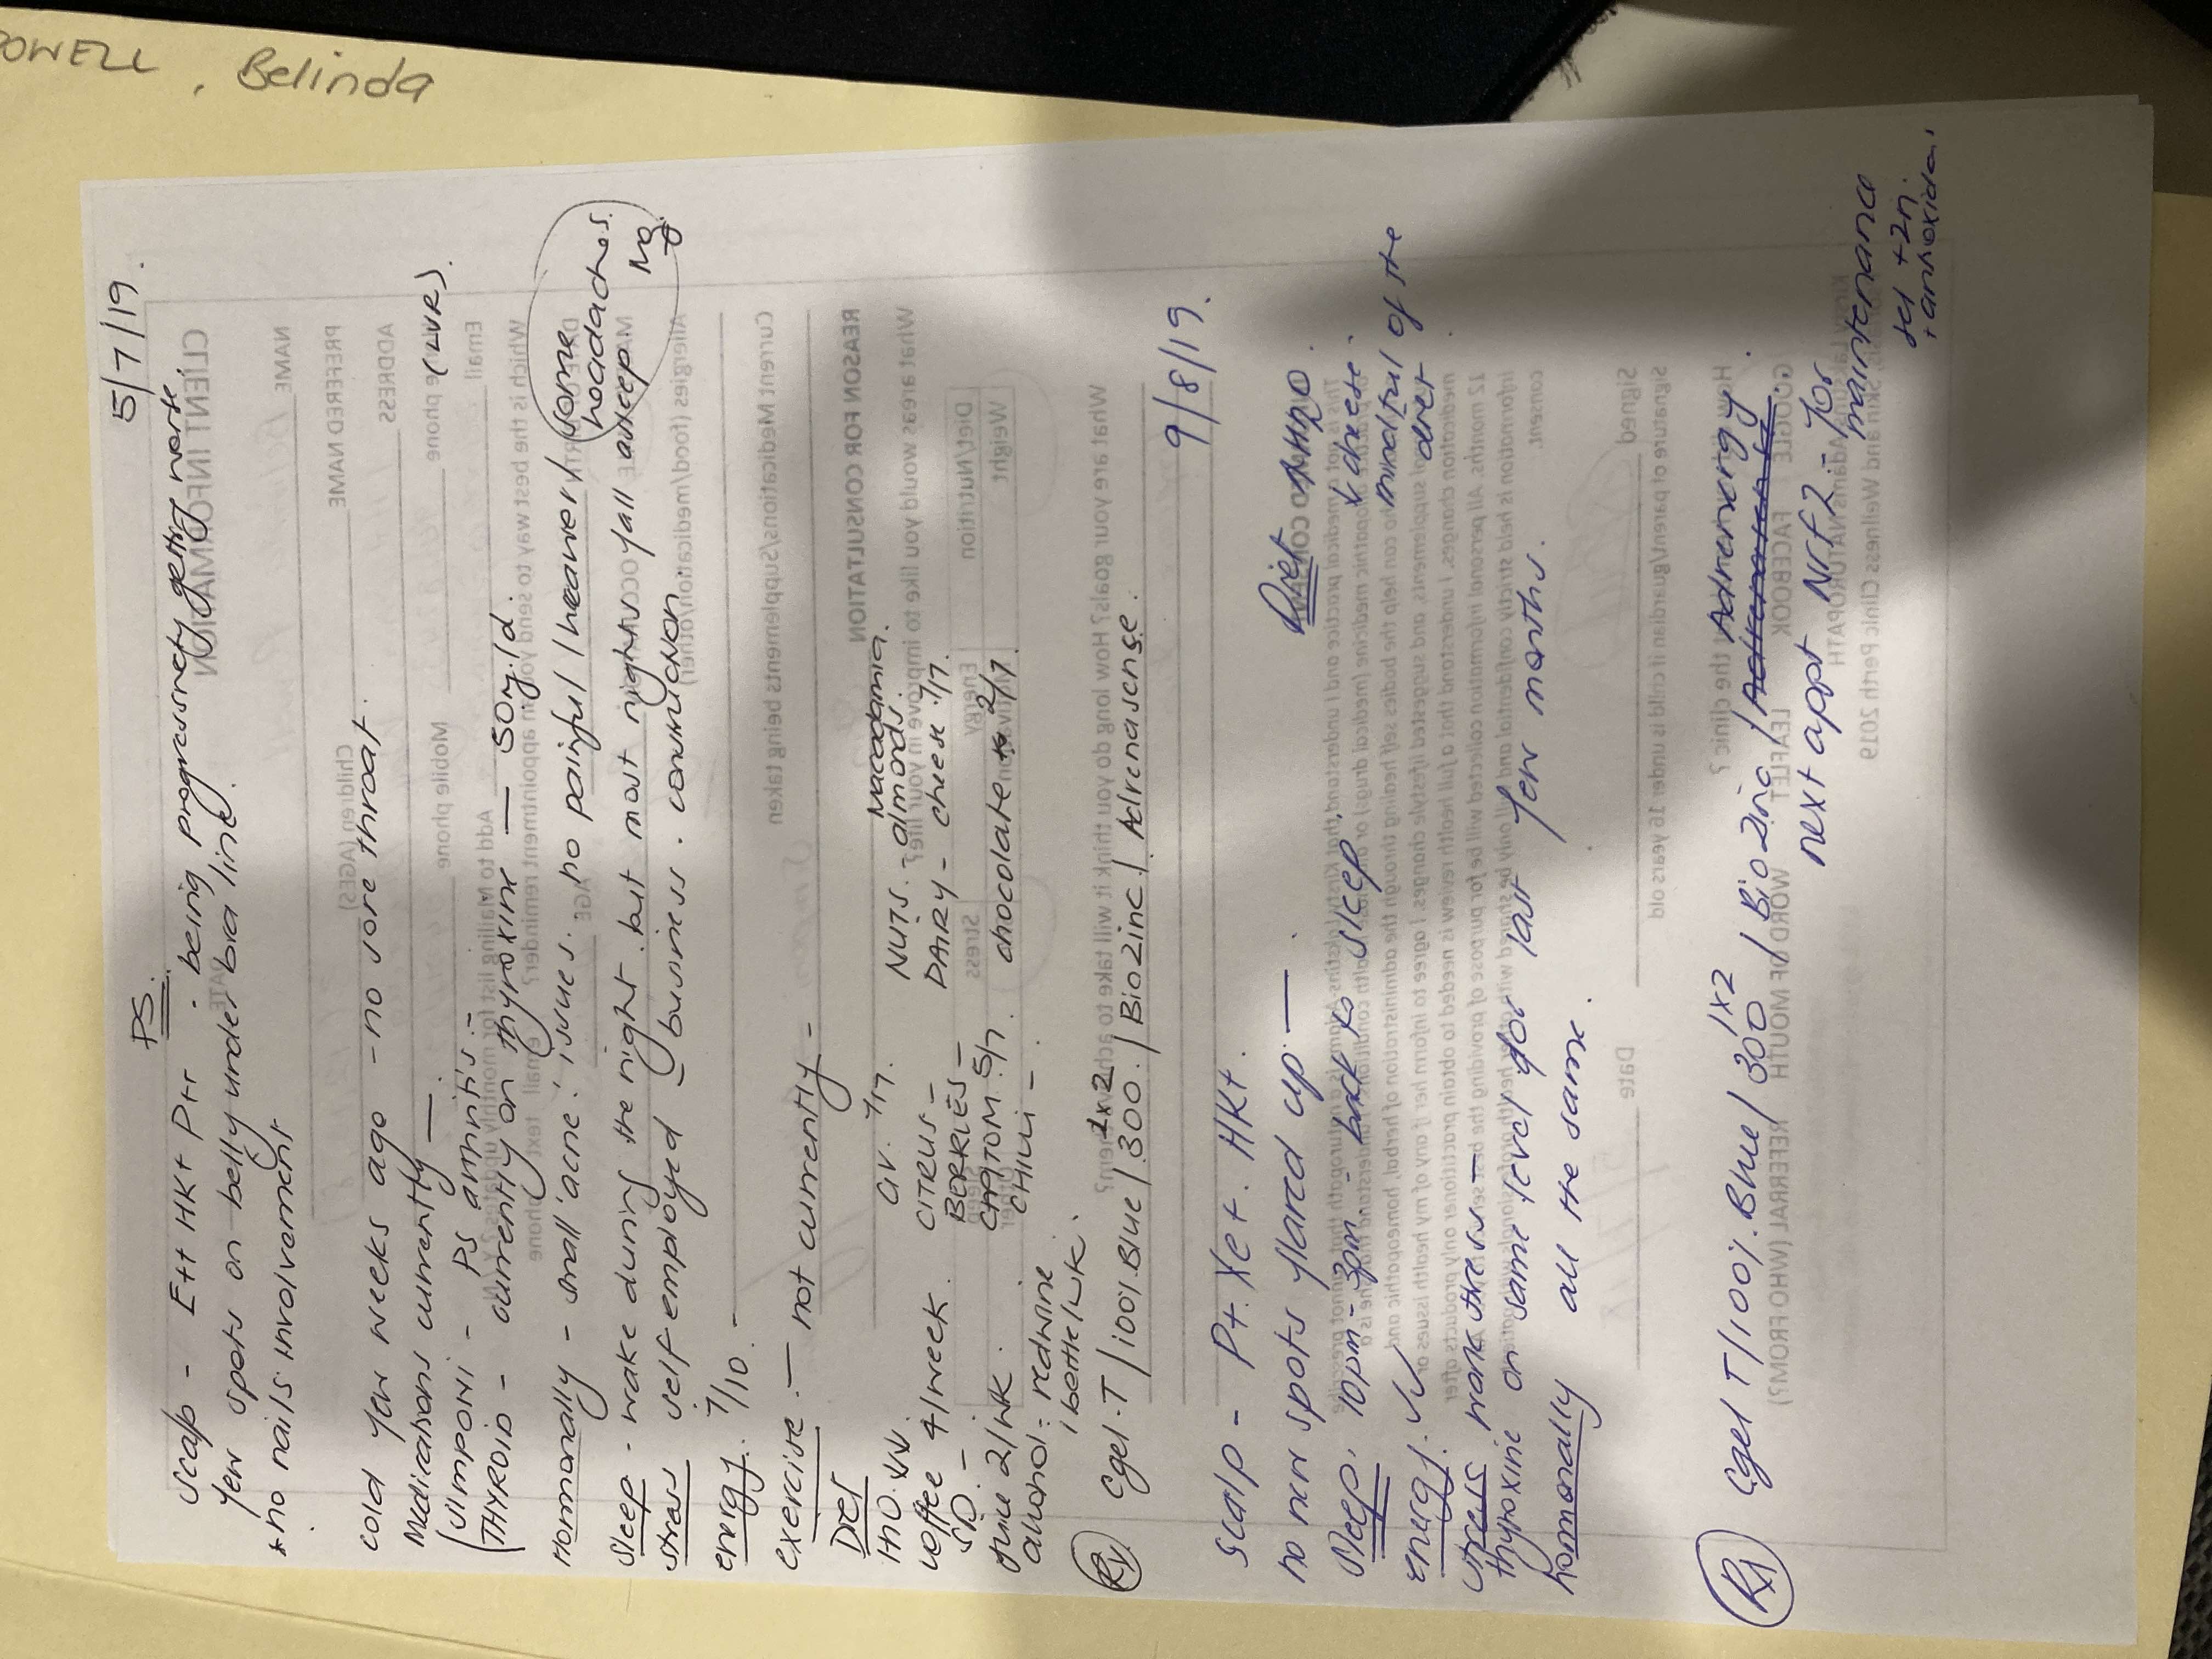 POWELL, Belinda
5/7/19.
PS.
Scalp - E++ HK+ P++ - being progressively getting worse.
few spots on belly under bra line.
+ no nails involvement
cold few weeks ago - no sore throat.
Medications currently —
(simponi - PS arthritis.- (LVR).
(THYROID - currently on thyroxine — 50mg/d.
Hormonally - small 'acne' issues. no painful / heavier /
some headaches.
Sleep - wake during the night. but most nights fall asleep. No
stress self employed - business. construction.
energy. 7/10. -
exercise. — not currently -
Diet
H2O. G.V. 7/7. NUTS. - almonds. Macadamia.
coffee 4/week. CITRUS - DAIRY - cheese 4/7.
SD. - BERRIES - chocolate 2/7.
juice 2/wk. CAP TOM. 5/7.
alcohol: red wine CHILLI -
1 bottle/wk.
Rx Cgel-T / 100%. Blue / 300. 2x2 / BioZinc. / Adrenasense.
9/8/19.
Scalp - P+. HK+.
no new spots flared up. —
Diet H2O
↓ cheese.
mindful of the
diet
Sleep. 10pm - 3am - back to sleep.
energy.
stress work stress —
thyroxine on same level for last few months.
hormonally all the same.
Rx Cgel T / 100%. Blue / 300 1x2 / Bio Zinc / Adrenergy
next appt Nrf2 - for
maintenance